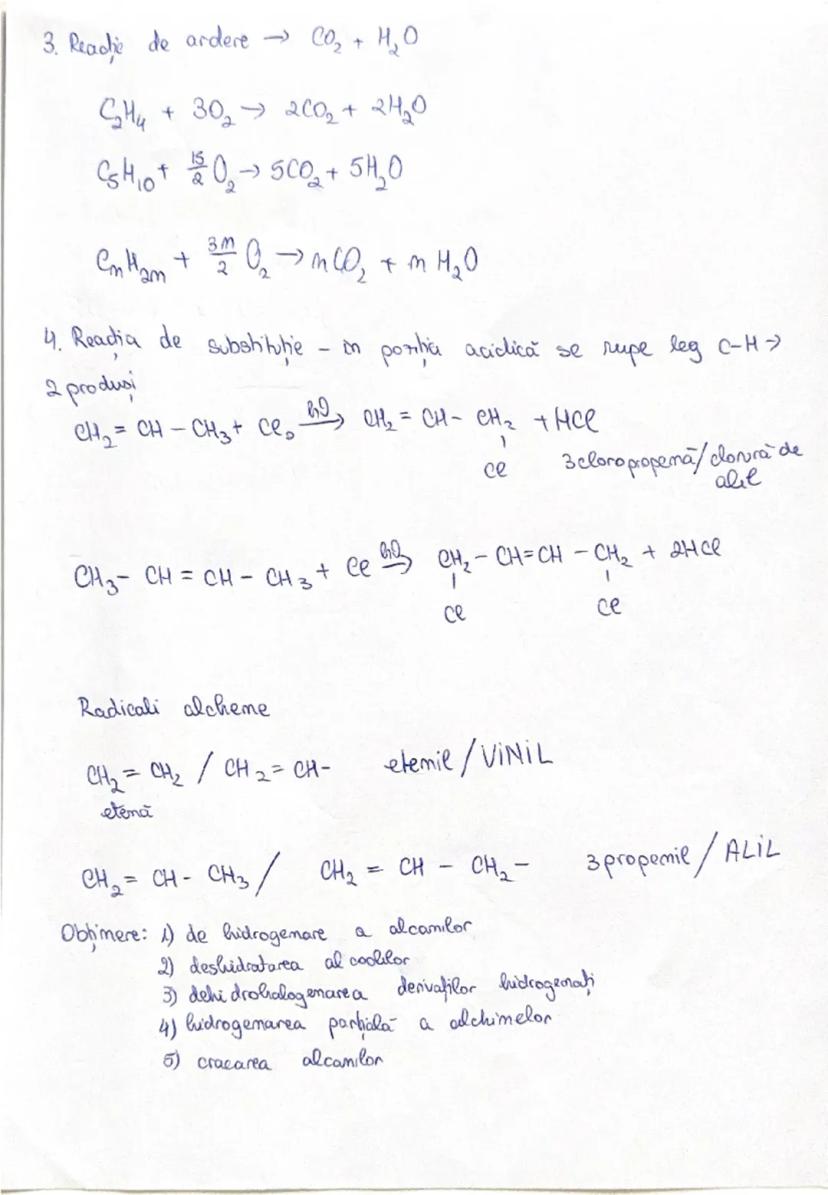 3. Reacție de ardere → CO₂ + H₂O
C₂H₄ + 3O₂ → 2CO₂ + 2H₂O
C₅H₁₀ + 15/2 O₂ → 5CO₂ + 5H₂O
CₙH₂ₙ + 3n/2 O₂ → nCO₂ + n H₂O
4. Reacția de substituție – în poziția acidică se rupe leg C-H →
2 produși
CH₂ = CH – CH₃ + Cl₂ → CH₂ = CH - CH₂ + HCl
Cl 3cloropropenă/clorură de
alil
CH₃ - CH = CH - CH₃ + Cl → CH₂ - CH = CH - CH₂ + 2HCl
Cl Cl
Radicali alchene
CH₂ = CH₂ / CH₂ = CH- etenil / VINIL
etenă
CH₂ = CH - CH₃ / CH₂ = CH - CH₂ - 3propenil / ALIL
Obținere: 1) de hidrogenare a alcanilor
2) deshidratarea alcoolilor
3) dehidrohalogenarea derivaților hidrogenați
4) hidrogenarea parțială a alchinelor
5) cracarea alcanilor